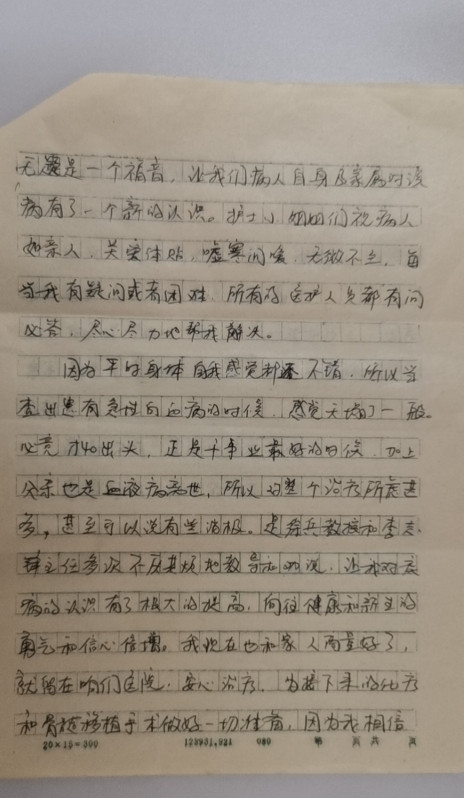 无疑是一个福音，让我们病人自身及亲属对该
病有了一个新的认识。护士小姐姐们视病人
如亲人，关爱体贴，嘘寒问暖，无微不至，每
当我有疑问或者困难，所有的医护人员都有问
必答，尽心尽力地帮我解决。
因为平时身体自我感觉都还不错，所以当
查出患有急性白血病的时候，感觉天塌了一般。
必竟才40出头，正是干事业最好的时候，加上
父亲也是血液病离世，所以对整个治疗所
，甚至可以说有些消极。是徐兵教授和李志
主任多次不厌其烦地教导和劝说，让我对疾
病的认识有了极大的提高，向往健康和新生的
勇气和信心倍增。我现在也和家人商量好了，
就留在咱们医院，安心治疗，为接下来的化疗
和骨髓移植手术做好一切准备，因为我相信
20×15=300 060 第 页共 页